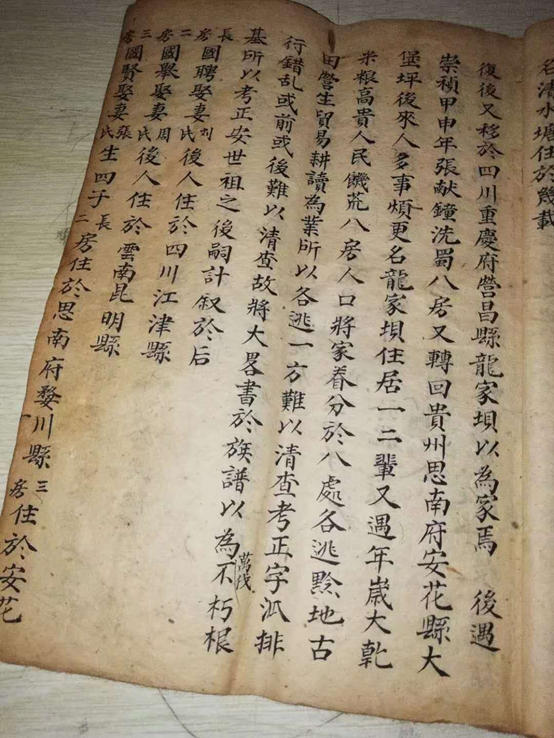 名清水塘住於幾載
復後又移於四川重慶府營昌縣龍家垻以為家焉 後遇
崇禎甲申年張献鐘洗蜀八房又轉回貴州思南府安花縣大
堡坪後來人多事煩更名龍家垻住居一二輩又遇年嵗大乹
米粮高贵人民饑荒八房人口將家眷分於八處各逃黔地古
田營生貿易耕讀為業所以各逃一方難以清查考正字派排
行錯乱或前或後難以清查故將大畧書於族譜以為萬代不朽根
基所以考正安世祖之後嗣計叙於后
長房國聘娶妻刘氏後人住於雲南昆明縣
二房國舉娶妻周氏後人住於四川江津縣
三房國賢娶妻張氏生四子長二房住於思南府婺川縣三房住於安花